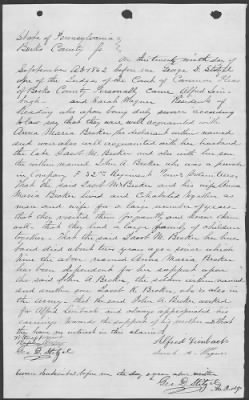 State of Pennsylvania
Berks County ss
On this twenty ninth day of
September AD 1862 before me George D. Stitzel
one of the Judges of the Court of Common Pleas
of Berks County Personally came Alfred Lim-
baugh and Sarah Wagner Residents of
Reading who upon being duly sworn according
to law say that they are well acquainted with
Anna Maria Becker the declarant within named
and were also well acquainted with her husband
the late Jacob M. Becker and also with her son
the within named John A. Becker who was a private
in Company F 32nd Regiment Penn Volunteers,
That the said Jacob M. Becker and his wife Anna
Maria Becker lived and cohabited together as
man and wife for a large number of years
that they visited them frequently and knew them
well, that they had a large family of children
together. That the said Jacob M. Becker her hus-
band died about few years ago since which
time the above named Anna Maria Becker
has been dependent for her support upon
the said John A. Becker, the within named
and another son Jacob A. Becker, who is also in
the army. That the said John A. Becker worked
for Alfred Limbach and always appropriated his
earnings towards the support of his mother & that
they have no interest in this claim
Alfred Limbach
Sarah A Wagner
Geo. D. Stitzel
Sworn & subscribed before me the day & year above written
Geo. D. Stitzel